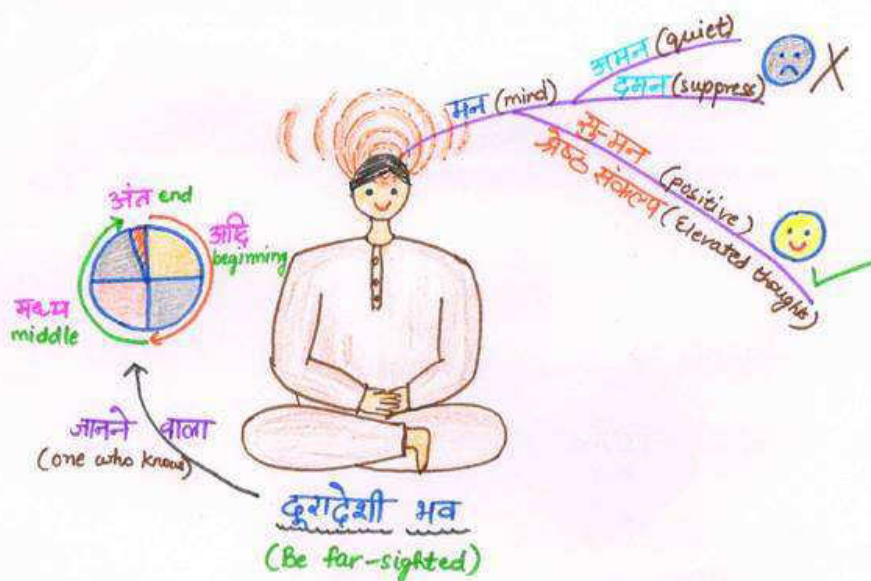 मन (mind)
अमन (quiet)
दमन (suppress)
सु-मन (positive)
श्रेष्ठ संकल्प (Elevated thoughts)
अंत end
आदि
beginning
मध्य
middle
जानने वाला
(one who knows)
दूरादेशी भव
(Be far-sighted)